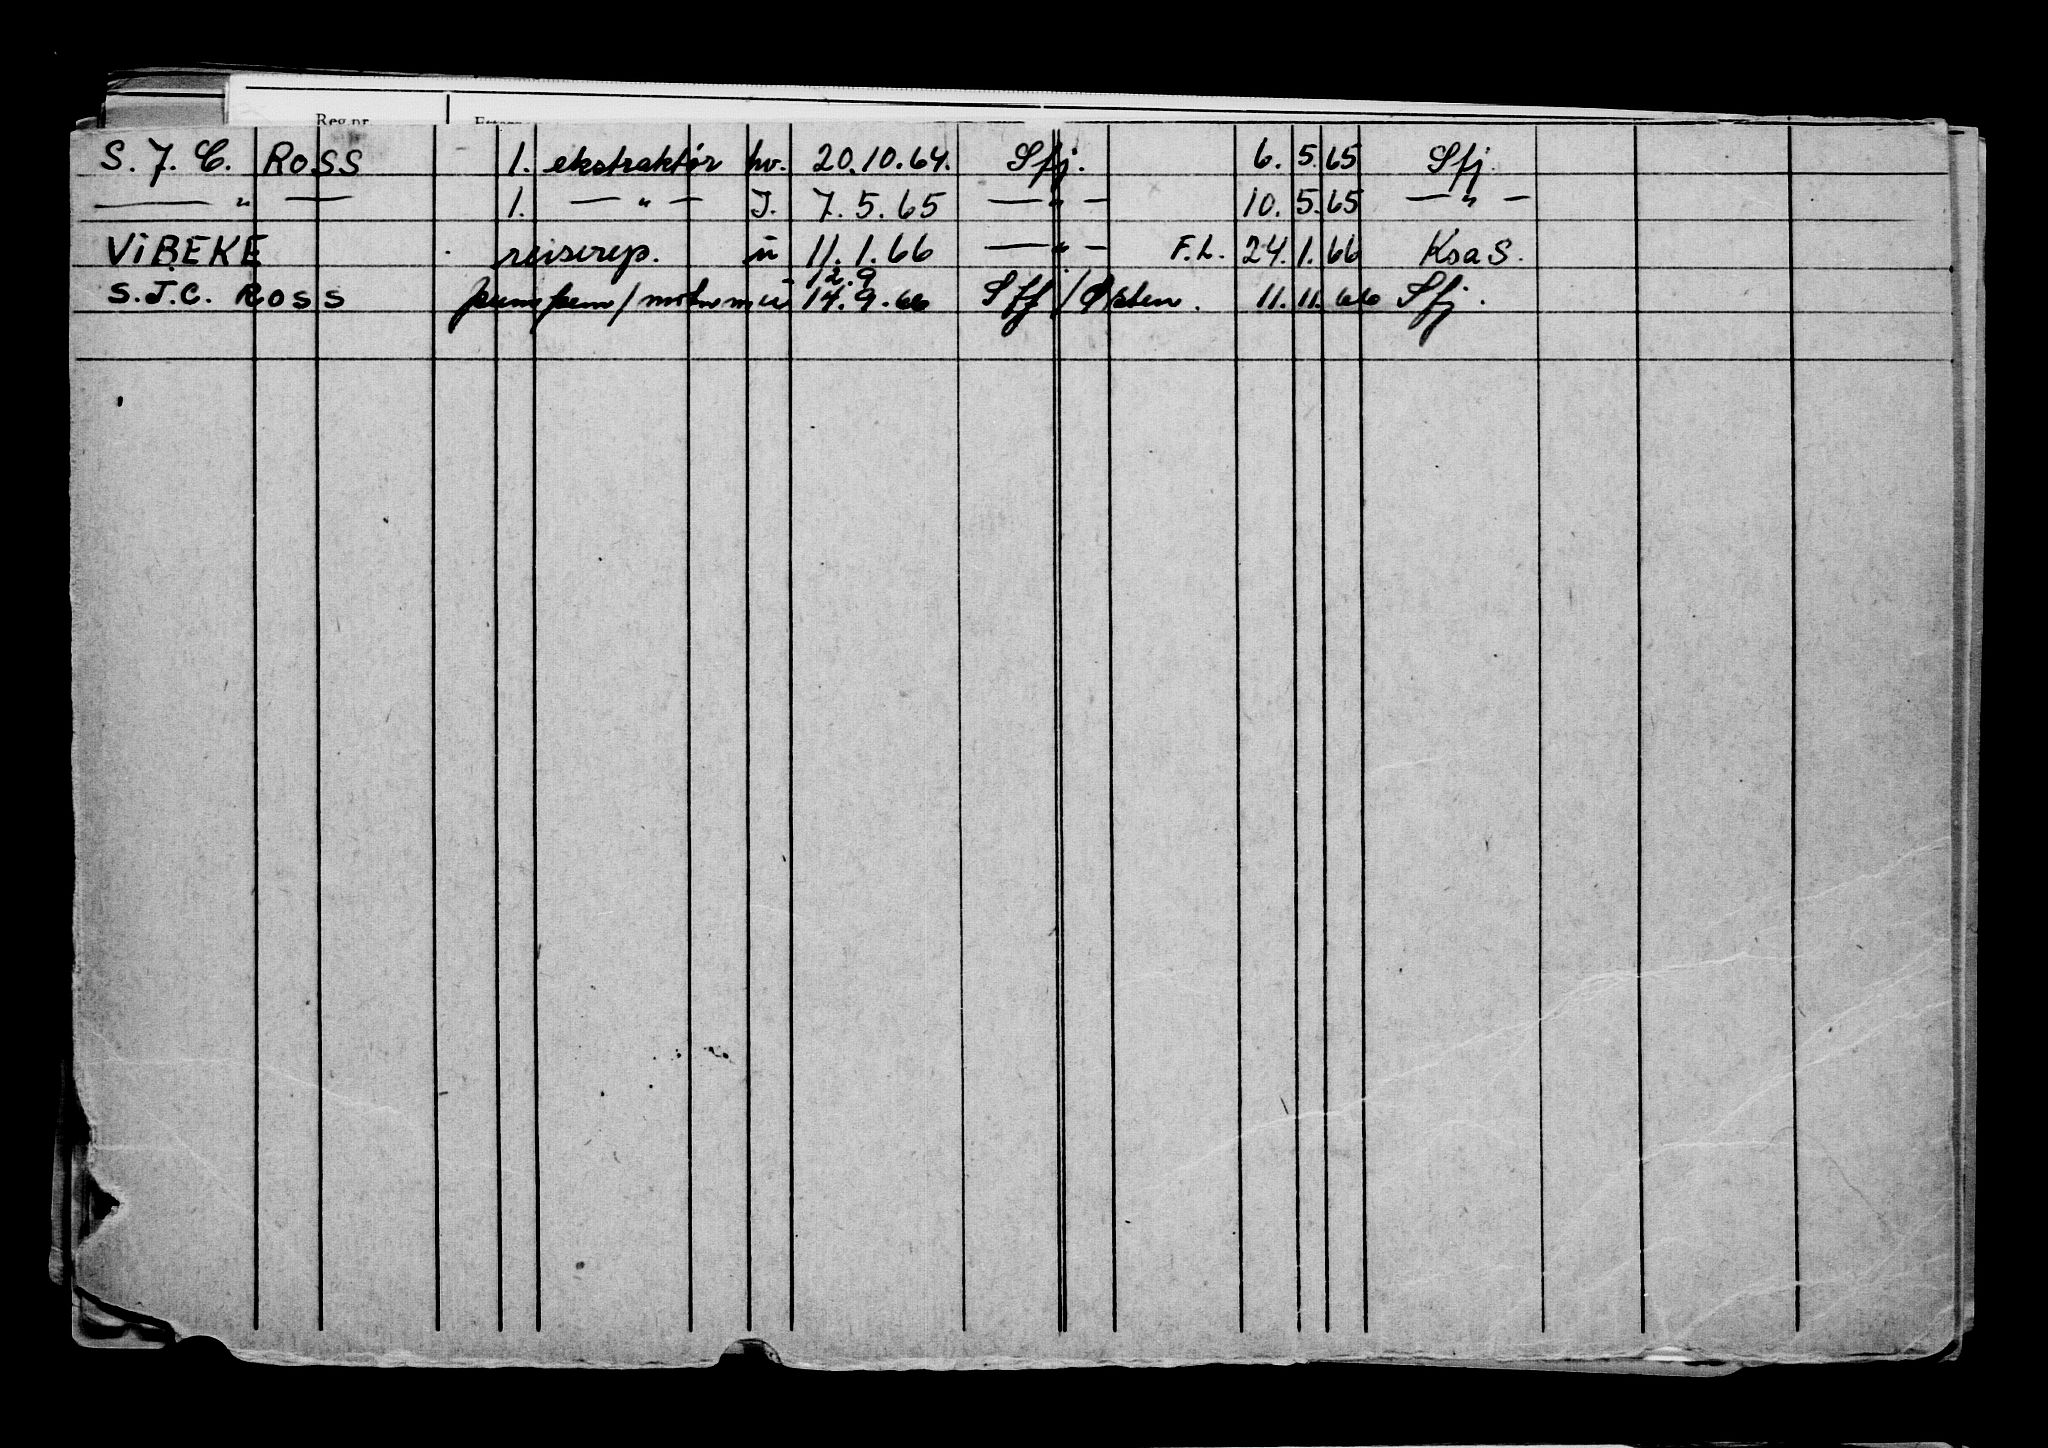 Reg.nr.
S. J. C. ROSS 1. ekstraktør hv. 20.10.64. Sfj. 6. 5. 65 Sfj.
— " — 1. — " — I. 7. 5. 65 — " — 10. 5. 65 — " —
ViBEKE reiserep. u 11. 1. 66 — " — F.L. 24. 1. 66 Ksa S.
12.9
S.J.C. ROSS / u 14. 9. 66 Sfj / Østen. 11. 11. 66 Sfj.